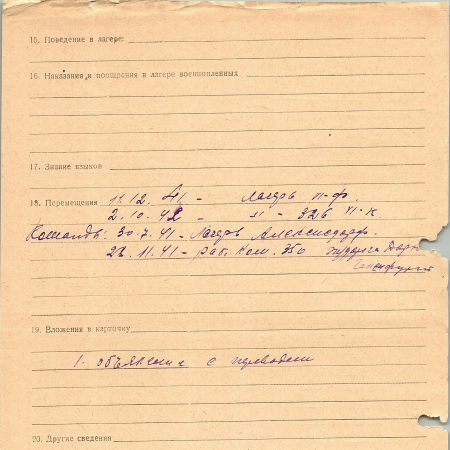 15. Поведение в лагере:
16. Наказания и поощрения в лагере военнопленных
17. Знание языков
18. Перемещения 11.12.41 - лагерь VI-ф.
2.10.42 - " - 326 VI-к.
Команды: 30.7.41 - Лагерь
22.11.41 - раб. Ком. 350
19. Вложения в карточку
1. объявление с переводом
20. Другие сведения